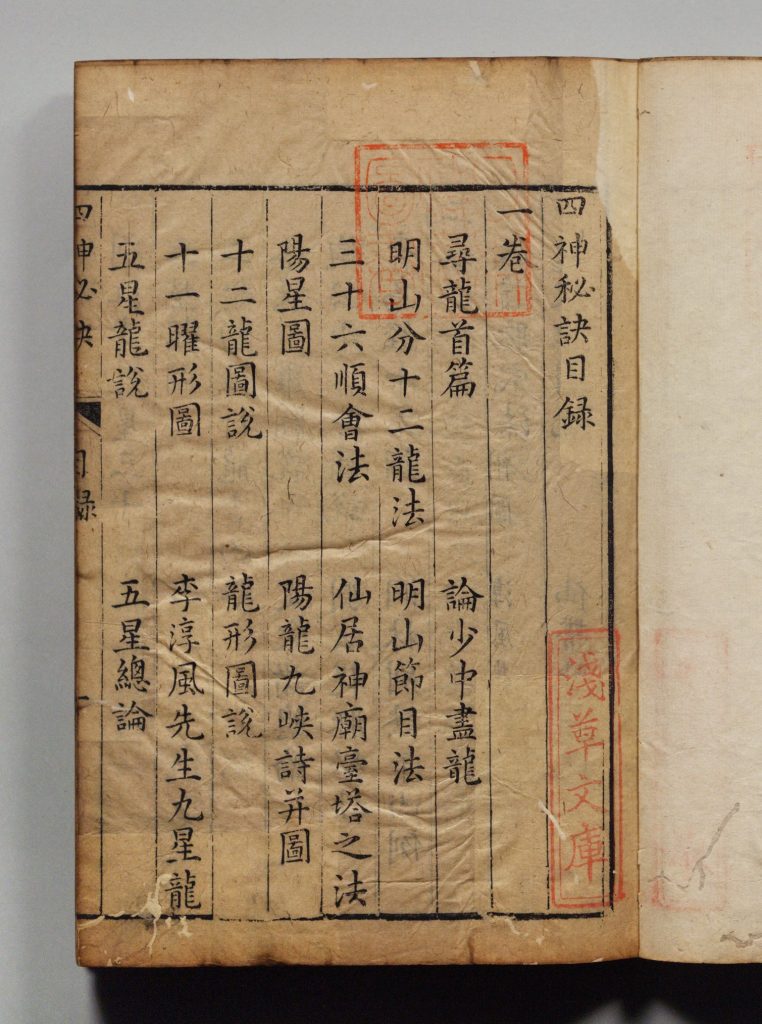 四神秘訣目録
一卷
尋龍首篇 論少中盡龍
明山分十二龍法 明山節目法
三十六順會法 仙居神廟臺塔之法
陽星圖 陽龍九峽詩并圖
十二龍圖說 龍形圖說
十一曜形圖 李淳風先生九星龍
五星龍說 五星總論
四神必決
目録
一
淺草文庫